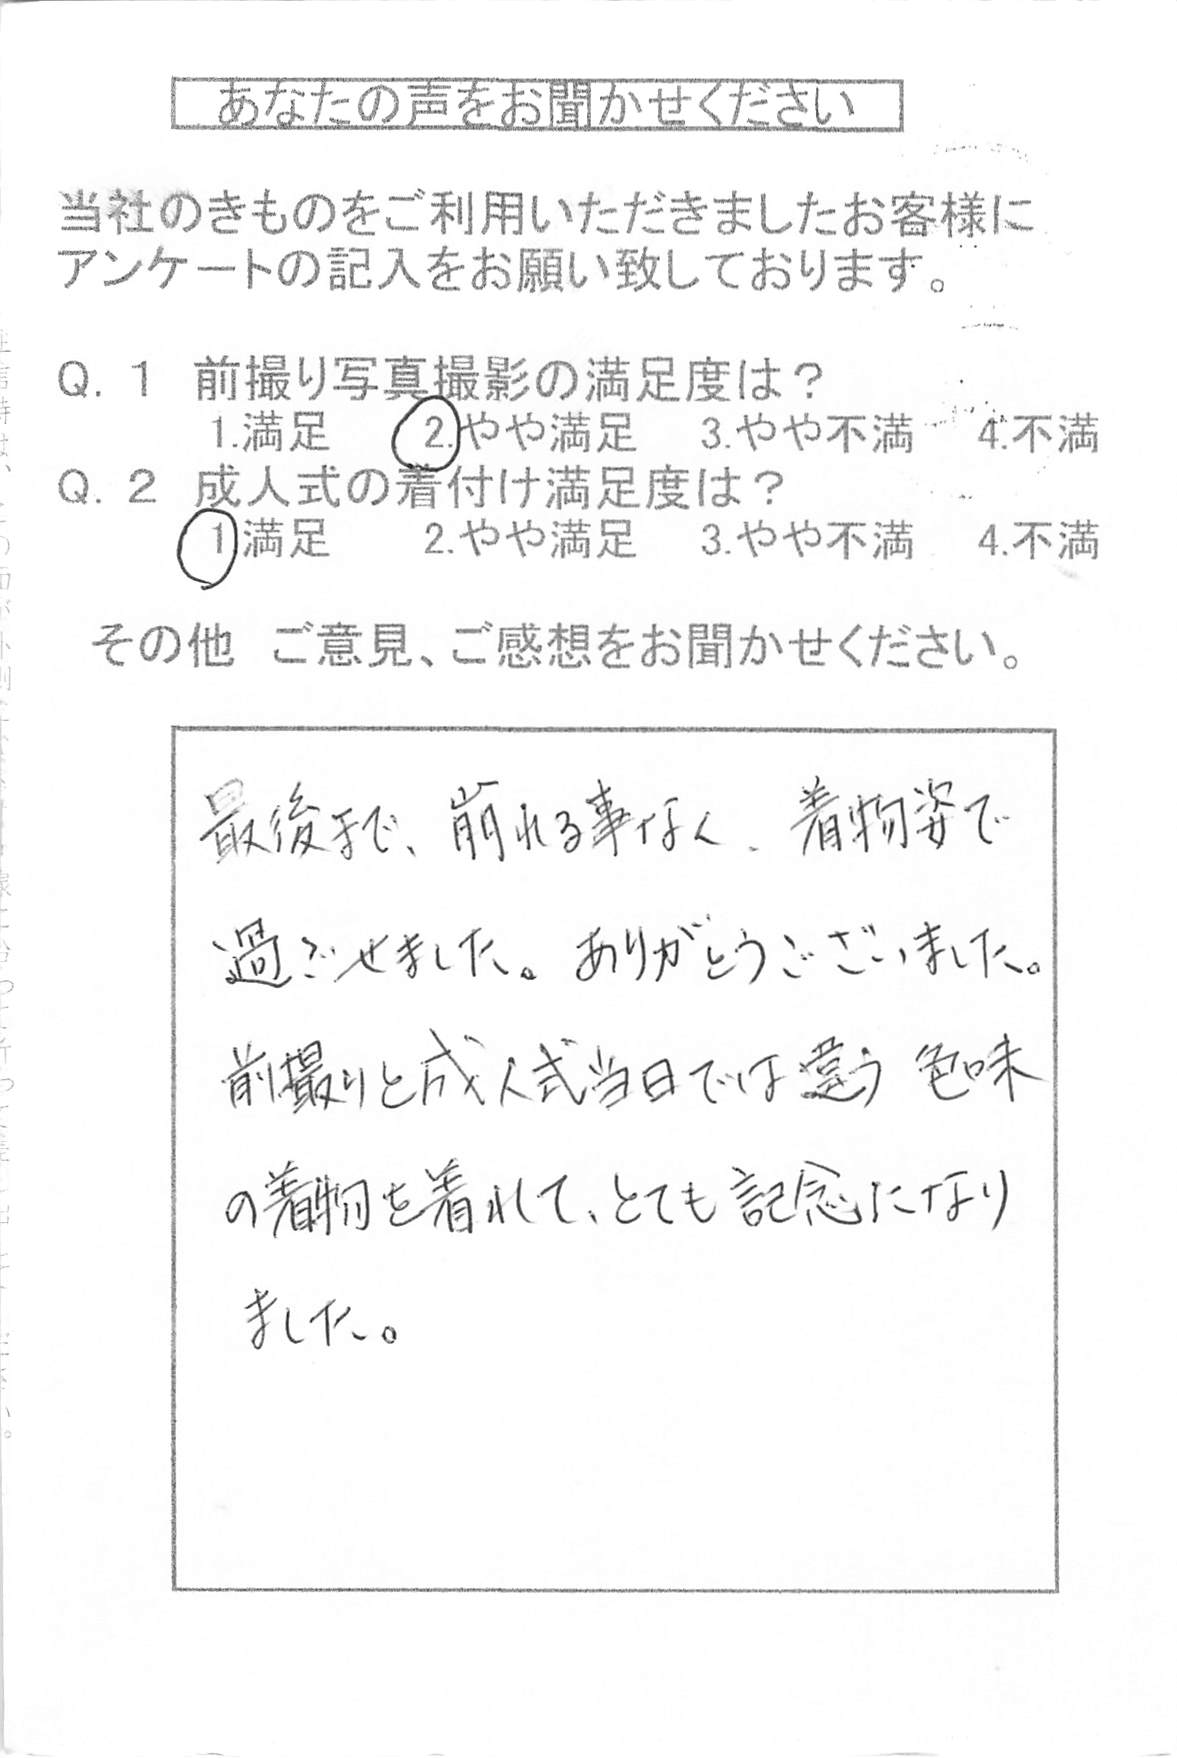 あなたの声をお聞かせください
当社のきものをご利用いただきましたお客様に
アンケートの記入をお願い致しております。
Q. 1 前撮り写真撮影の満足度は？
1.満足 2.やや満足 3.やや不満 4.不満
Q. 2 成人式の着付け満足度は？
1.満足 2.やや満足 3.やや不満 4.不満
その他 ご意見、ご感想をお聞かせください。
最後まで、崩れる事なく、着物姿で
過ごせました。ありがとうございました。
前撮りと成人式当日では違う色味
の着物を着れて、とても記念になり
ました。